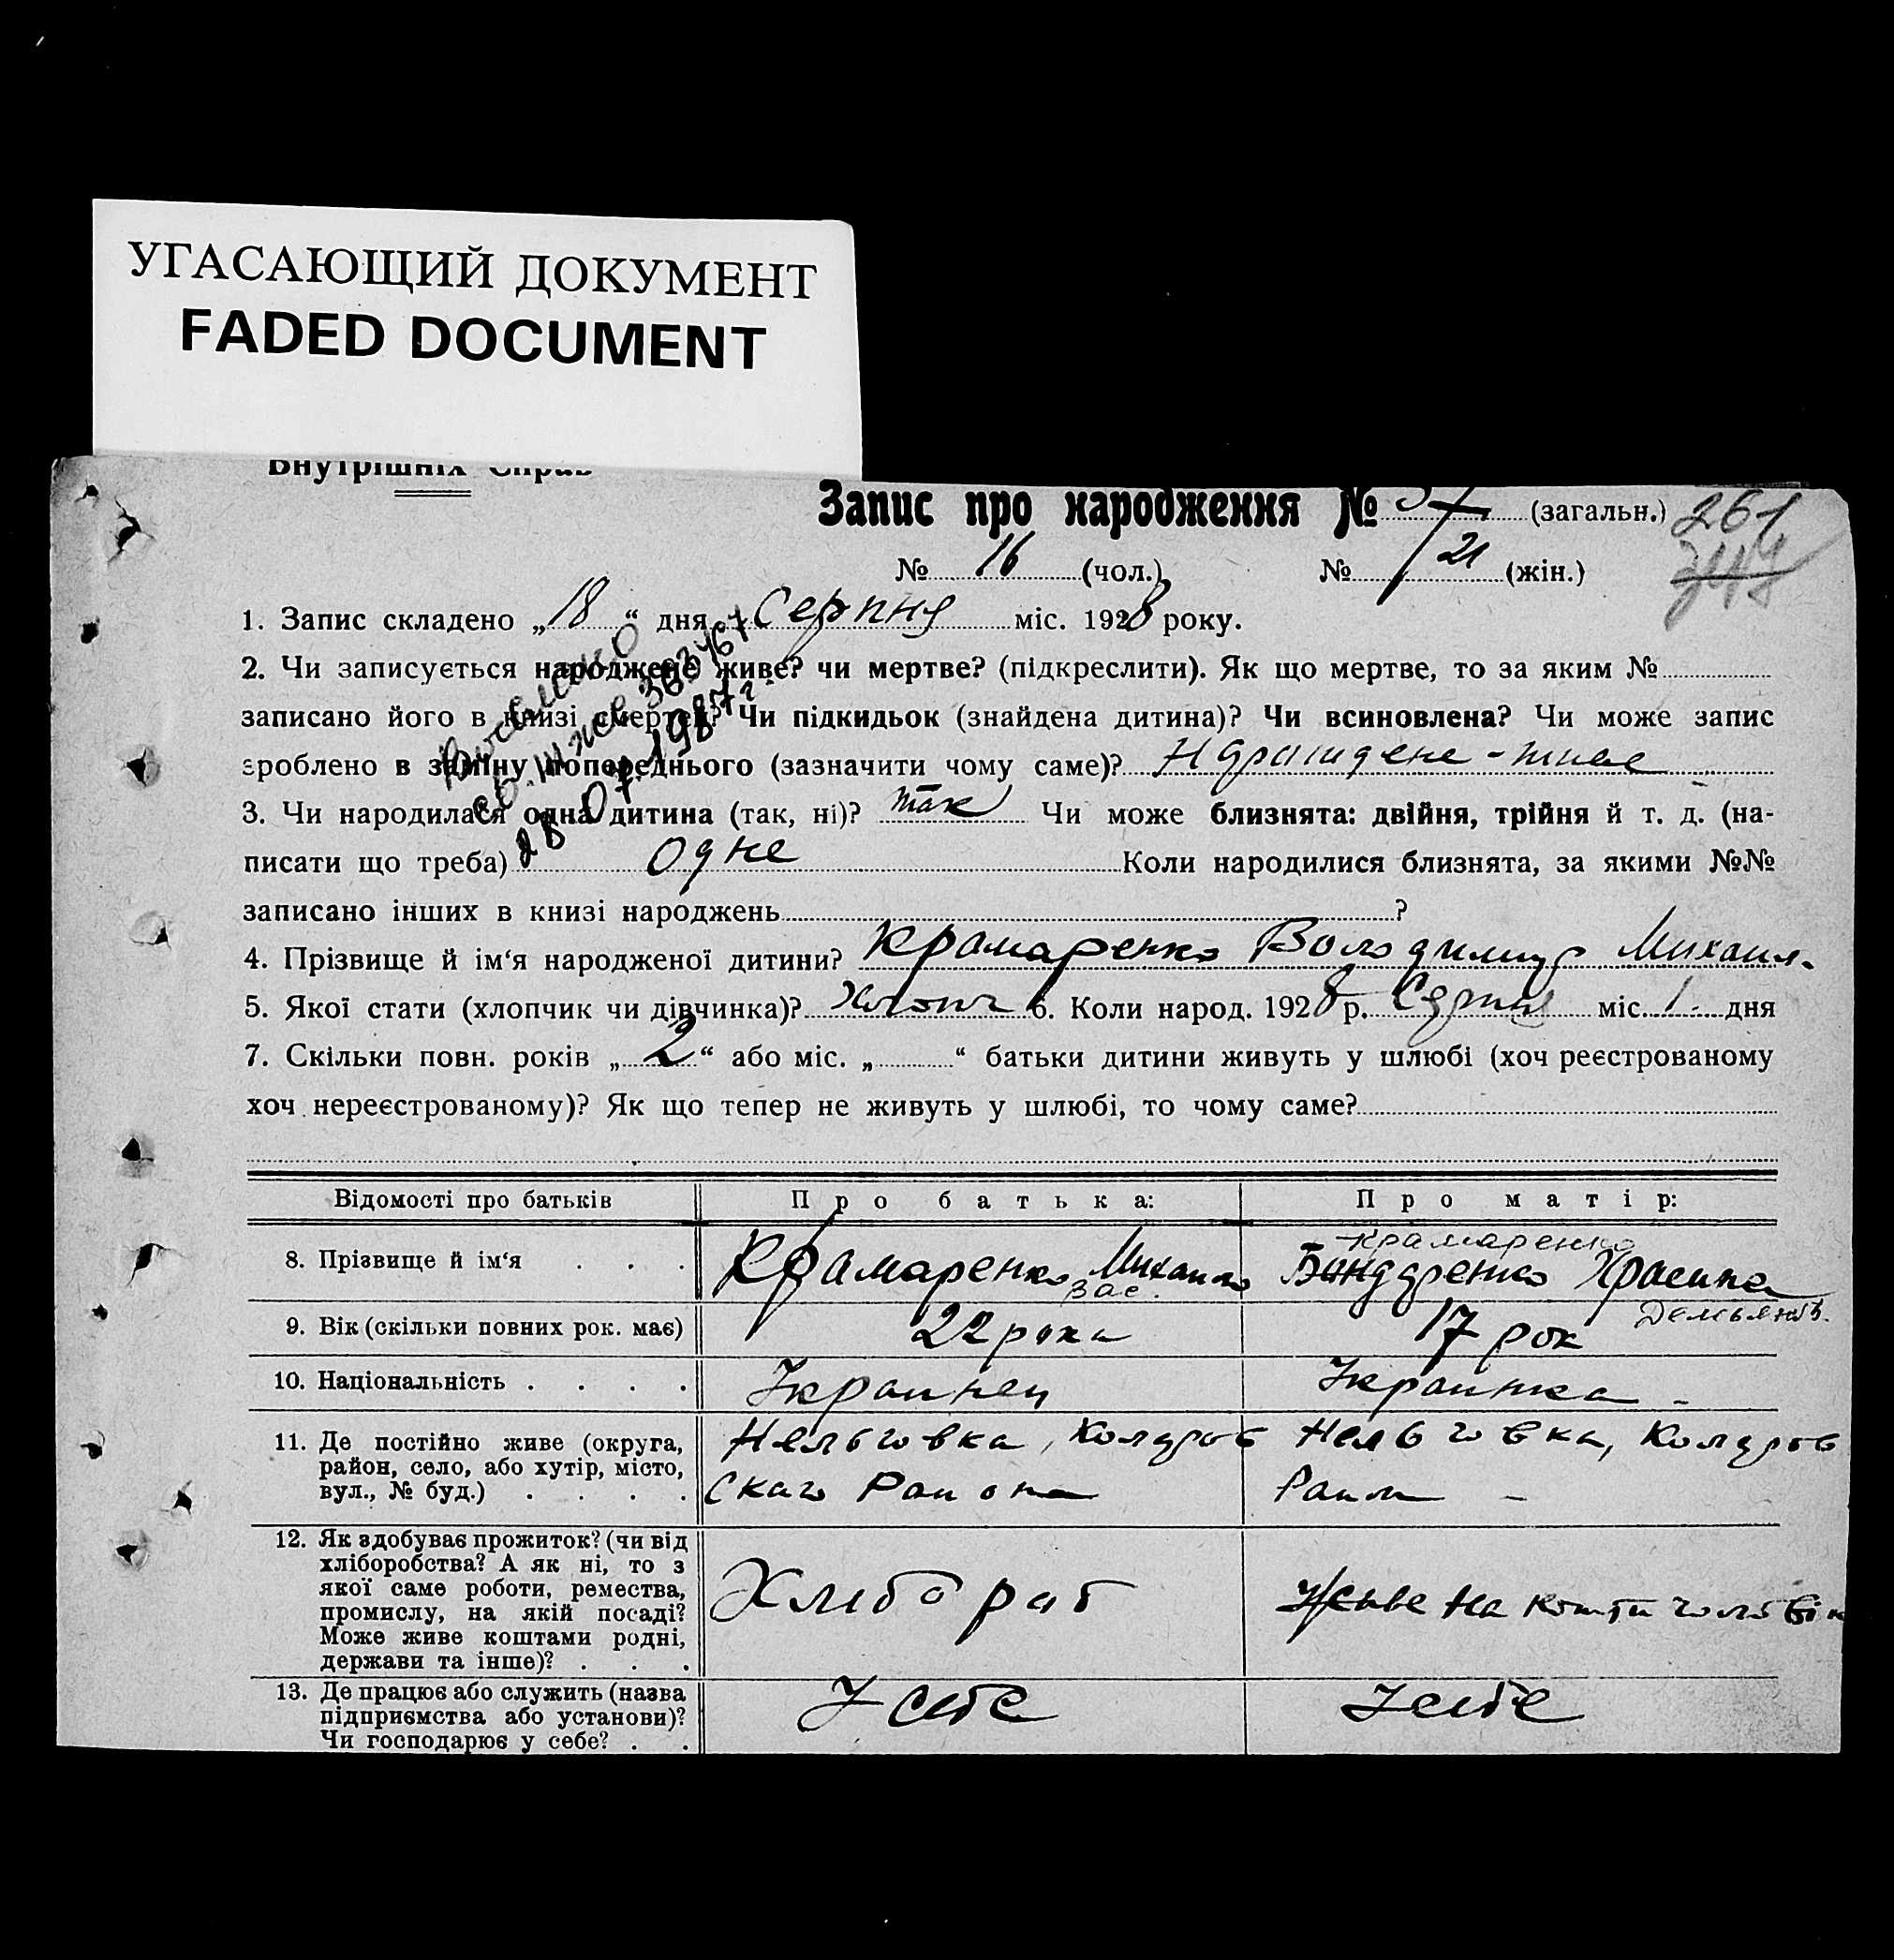 УГАСАЮЩИЙ ДОКУМЕНТ
FADED DOCUMENT
Внутрішніх Справ
Запис про народження № 37 (загальн.) 261
№ 16 (чол.) № 21 (жін.)
1. Запис складено „18“ дня Серпня міс. 1928 року.
2. Чи записується народжене живе? чи мертве? (підкреслити). Як що мертве, то за яким №
записано його в книзі смертей? Чи підкидьок (знайдена дитина)? Чи всиновлена? Чи може запис
зроблено в заміну попереднього (зазначити чому саме)?
28 07.1987г.
3. Чи народилася одна дитина (так, ні)? так Чи може близнята: двійня, трійня й т. д. (на-
писати що треба) одне Коли народилися близнята, за якими №№
записано інших в книзі народжень ?
4. Прізвище й ім‘я народженої дитини? Крамаренко Володимир Михаил.
5. Якої стати (хлопчик чи дівчинка)? 6. Коли народ. 1928 р. Серпня міс. 1 дня
7. Скільки повн. років „2“ або міс. „ “ батьки дитини живуть у шлюбі (хоч реєстрованому
хоч нереєстрованому)? Як що тепер не живуть у шлюбі, то чому саме?
Відомості про батьків Про батька: Про матір:
Крамаренко
8. Прізвище й ім‘я . . . Крамаренко Михаило Бондаренко
Зас.
9. Вік (скільки повних рок. має) 22 рока 17 рок
10. Національність . . . . Украинец Украинка
11. Де постійно живе (округа, Нельговка, Коларов Нельговка, Коларов
район, село, або хутір, місто,
вул., № буд.) . . . . скаго Раиона Раион
12. Як здобуває прожиток? (чи від
хліборобства? А як ні, то з
якої саме роботи, ремества, Хлібораб Живе на кошти чоловік
промислу, на якій посаді?
Може живе коштами родні,
держави та інше)? . . .
13. Де працює або служить (назва У себе У себе
підприємства або установи)?
Чи господарює у себе? . .